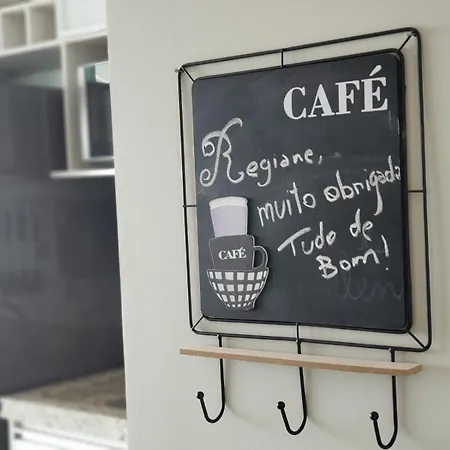 CAFÉ
Regiane,
muito obrigada
Tudo de
Bom!
CAFÉ